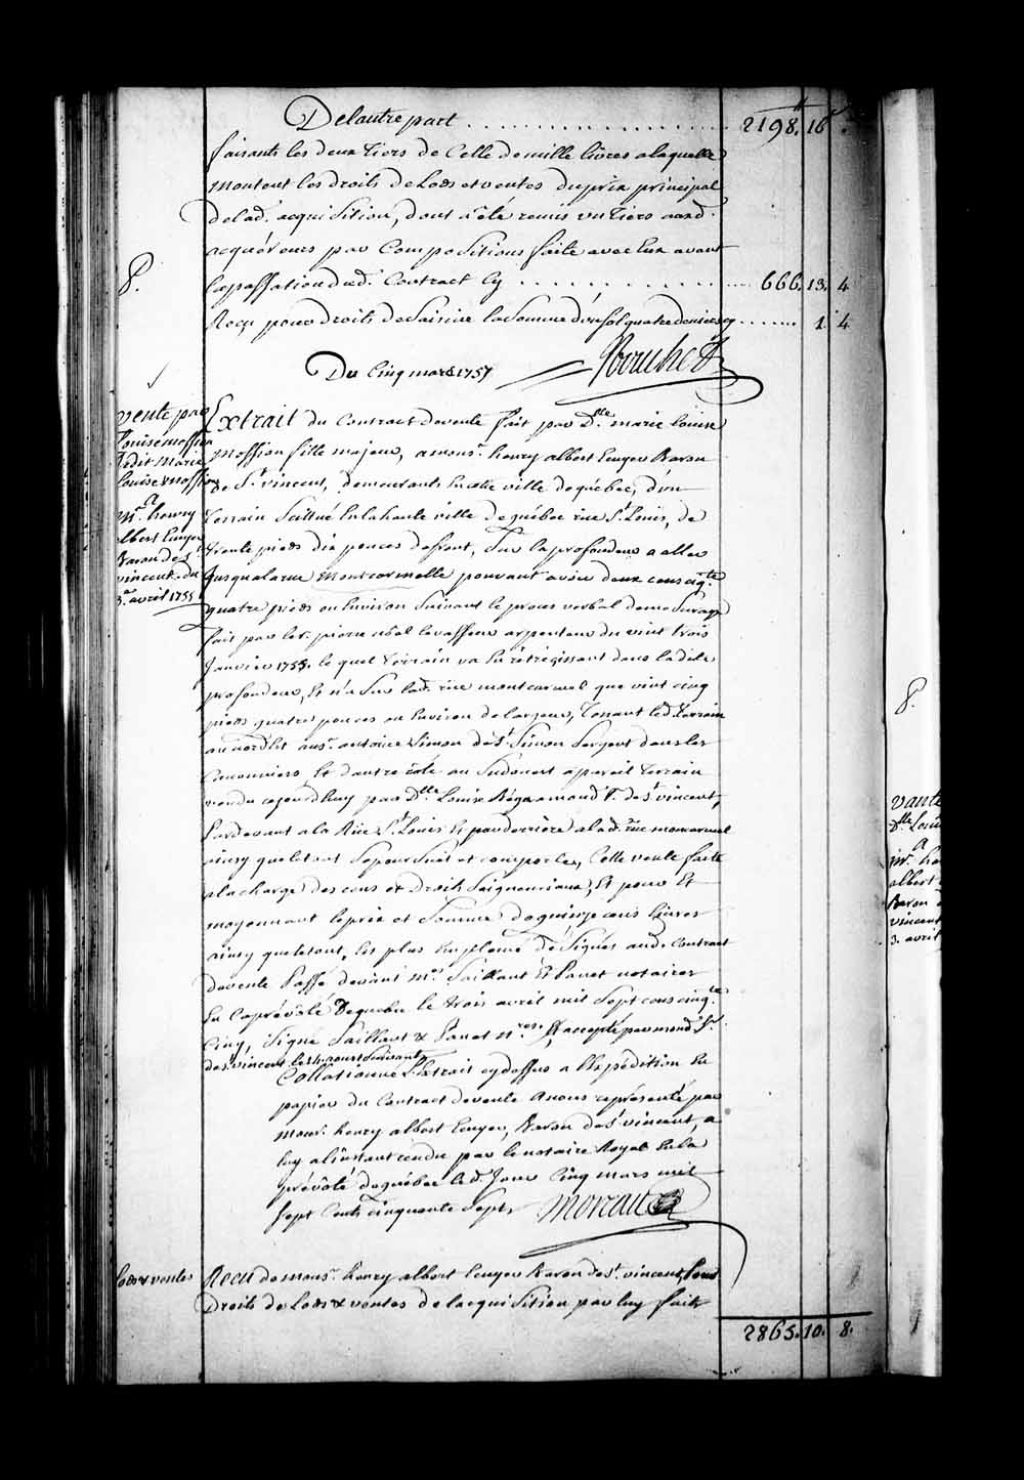 Delautre part . . . . . . . . . . . . . . 2198.tt 16s
faisants les deux Tiers de Celle de mille livres a laquelle
montent les droits de Lods et ventes du prix principal
de lad. acquisition, dont a été remis un Tiers aux d.
acquéreurs par Composition faite avec Eux avant
8.
la passation dud. Contract Cy . . . . . . . . . . . . 666. 13. 4
Reçu pour droits de Saisine la Somme d'un sol quatre deniers cy . . . . . . 1. 4
Du Cinq mars 1757
vente par
Louise moffion
Marie
Louise moffion
a
Mr. henry
albert
Baron de St.
vincent. du
3e. avril 1755
Extrait du Contract de vente fait par Dlle. marie louise
moffion fille majeure, a monsr. henry albert Baron
de St. vincent, demeurants en cette ville de québec, d'un
Terrain Scittué En la haute ville de québec rüe St. Louis, de
trente pieds dix pouces de front, Sur la profondeur a aller
Jusqua la rue montcarmelle pouvant avoir deux cens cinqte.
quatre pieds ou Environ Suivant le procès verbal de mesurage
fait par le Sr. pierre noël levasseur arpenteur du vint trois
Janvier 1755. le quel Terrain va En rétrécissant dans la dite
profondeur, Et n'a Sur lad. rüe montcarmel que vint cinq
pieds quatre pouces ou Environ de largeur, Tenant led. Terrain
au nordEst au sr. antoine Simon de St. Simon Sergent dans les
Canonniers, Et d'autre côté au Sudouest a pareil Terrain
vendu cejourdhuy par Dlle. Louise
Pardevant a la Rüe St. Louis Et par derrière a la d. rüe moncarmel
ainsy que le tout Se poursuit et comporte, Cette vente faite
a la charge des cens et droits Seigneuriaux, Et pour Et
moyennant le prix et Somme de quinze cens livres
ainsy que le tout, Est plus Emplement désigné aud. Contract
de vente Passé devant Mes. Saillant Et Panet notaires
En la prévôté De quebec le trois avril mil Sept cens cinqte.
Cinq, Signé Saillant & Panet nres.
de St. vincent
Collationné L'Extrait cy dessus a l'Expédition En
papier du Contract de vente a nous représenté par
monsr. henry albert Baron de St. vincent, a
luy a l'instant rendu par le notaire Royal En la
prévôté de québec led. Jour Cinq mars mil
Sept Cents cinquante Sept. Moreau
lods & ventes
Recu de monsr. henry albert Baron de St. vincent, les
Droits de Lods & ventes de lacquisition par luy faite
2865. 10. 8.
8.
vante
Dlle Loui
a
mr. he
albert
Baron d
vincent
3. avril